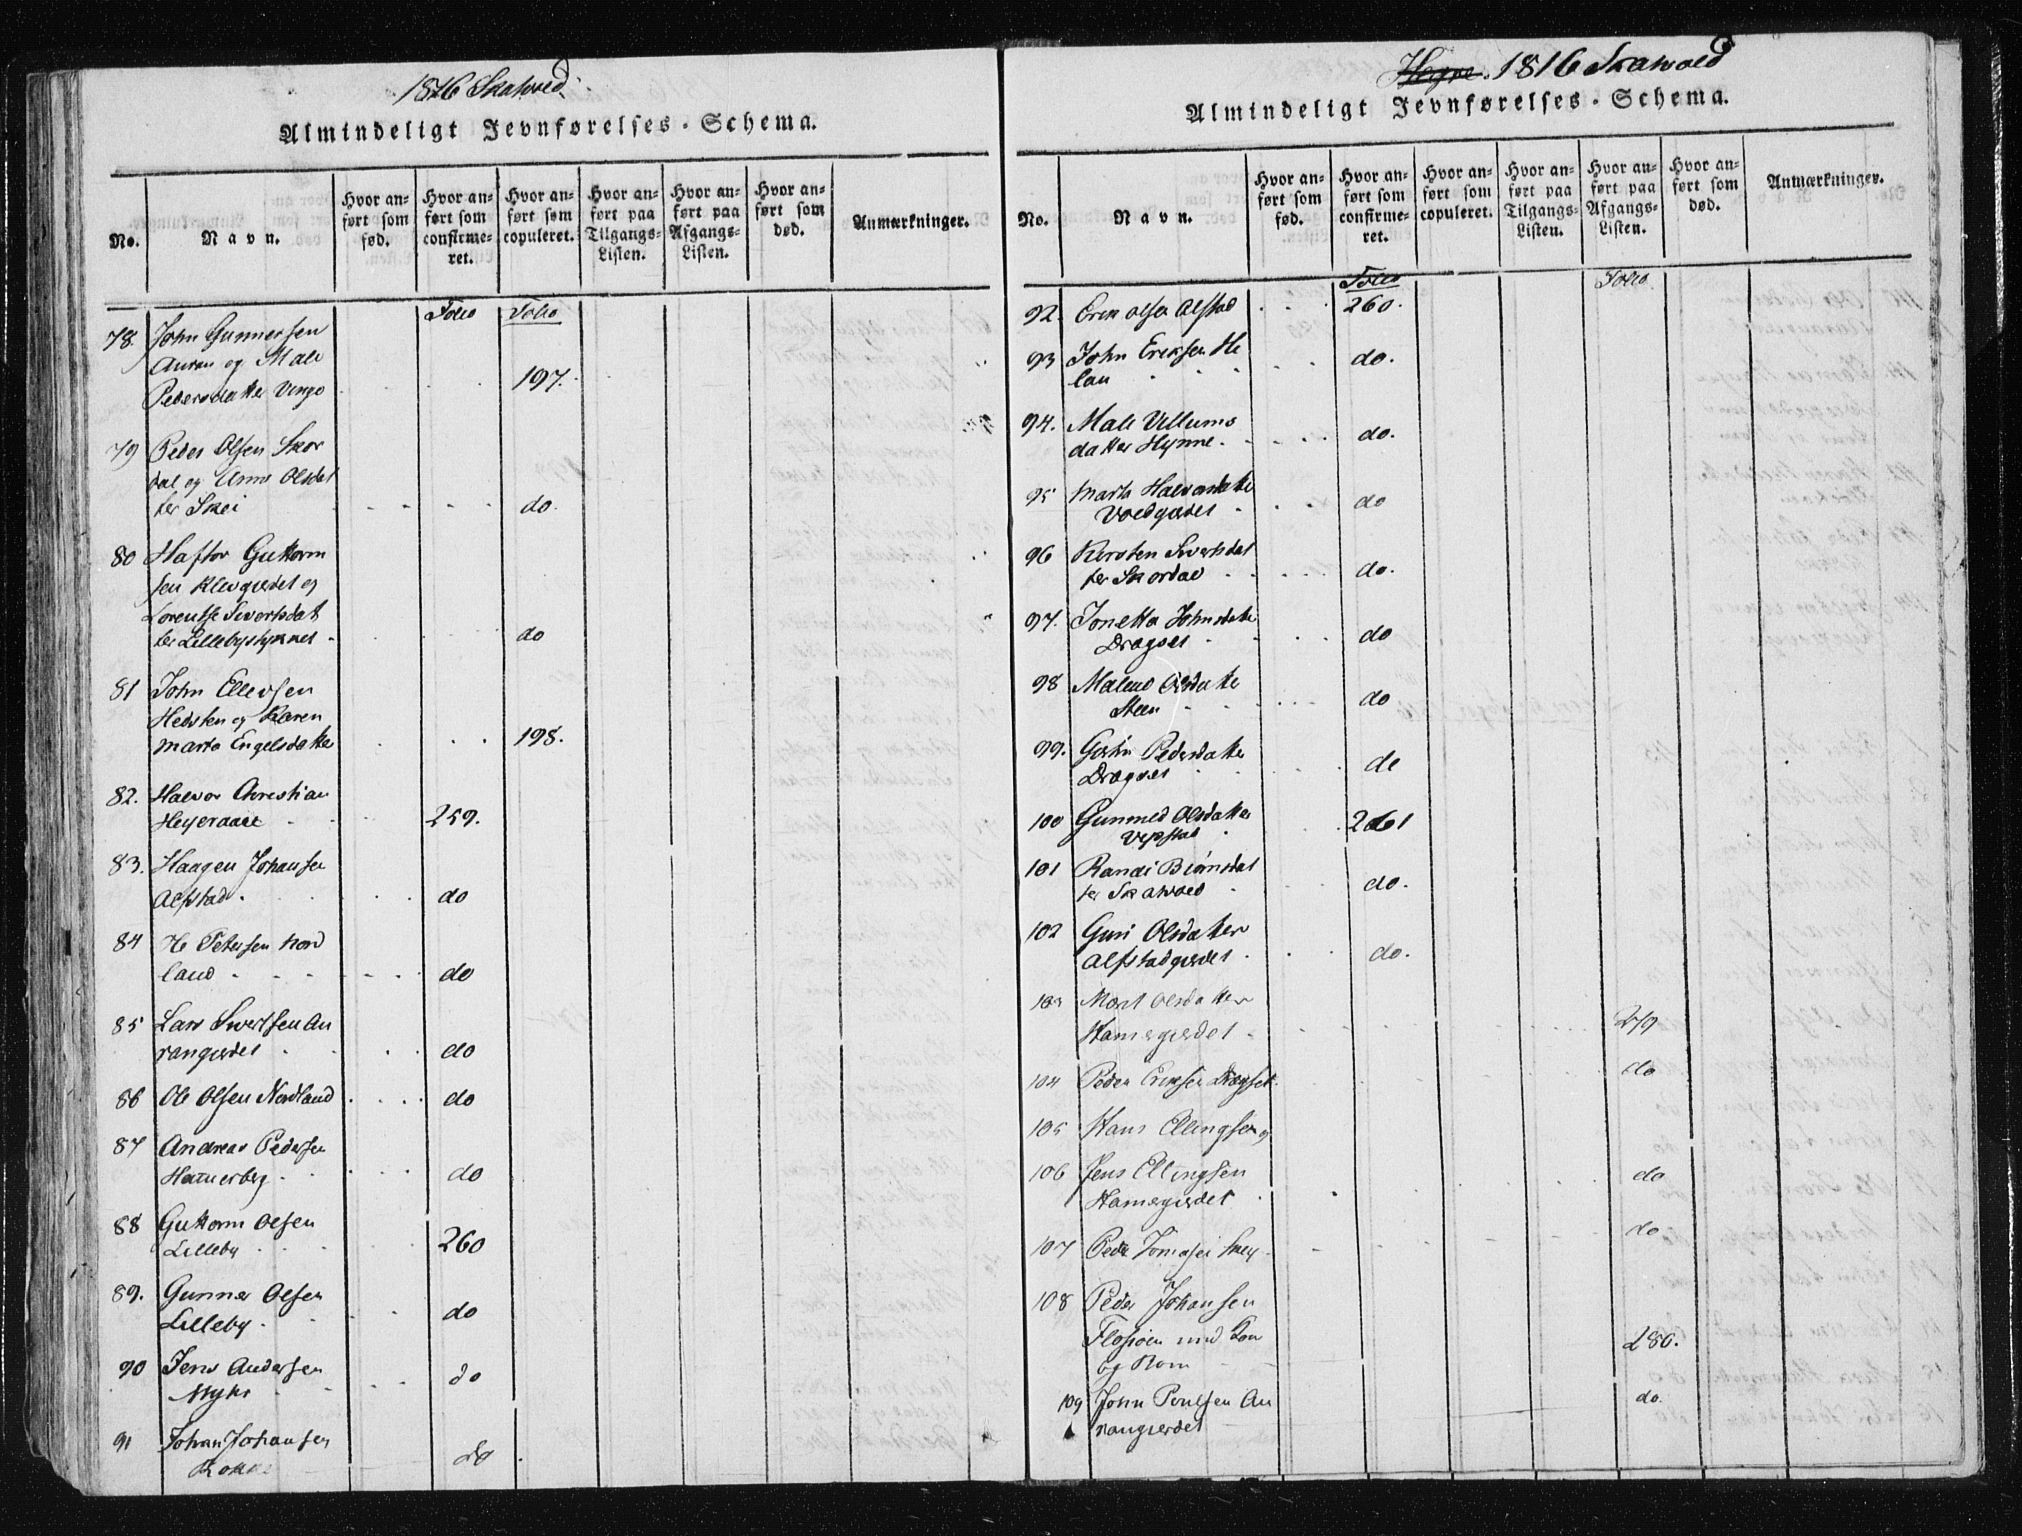 1816 Skatvold
Almindeligt Jevnførelses-Schema.
No.
Navn.
Hvor an-
ført som
fød.
Hvor an-
ført som
confirme-
ret.
Hvor an-
ført som
copuleret.
Hvor an-
ført paa
Tilgangs-
Listen.
Hvor an-
ført paa
Afgangs-
Listen.
Hvor an-
ført som
død.
Anmærkninger.
Folio Folio
78. John Gunnersen
Auran og Mali
Pedersdatter Vinge 197.
79 Peder Olsen Skor
dal og Anne Olsdat
ter Skei do.
80 Haftor Guttorm
sen Klevgierdet og
Lorentse Sivertsdat
ter Lillebystykket do
81 John Ellevsen
Hedsten og Karen
Marta Engelsdatter 198.
82. Halvor Christian
259.
83. Haagen Johansen
Alfstad. do
84 Petersen Nord
land do
85 Lars Sivertsen Au
rangierdet do
86 Ole Olsen Nordland do
87 Andreas Pedersen
Hammerberg do
88 Guttorm Olsen
Lilleby 260
89. Gunner Olsen
Lilleby do
90 Jens Andersen
Myhr do
91 Johan Johansen
do
Hegre. 1816 Skatvold
Almindeligt Jevnførelses-Schema.
No.
Navn.
Hvor an-
ført som
fød.
Hvor an-
ført som
confirme-
ret.
Hvor an-
ført som
copuleret.
Hvor an-
ført paa
Tilgangs-
Listen.
Hvor an-
ført paa
Afgangs-
Listen.
Hvor an-
ført som
død.
Anmærkninger.
Folio Folio
92. Erik Olsen Alstad 260.
93 John Eriksen He
lan do.
94. Mali Villums
datter Hynne do.
95 Marta Halvorsdatter
Voldgierdet do
96 Kirsten Sivertsdat
ter Skordal do.
97. Jonetta Johnsdatter
Dragset do
98 Malene Olsdatter
Steen do
99. Gjertru Pedersdatter
Dragset do
100 Gunnild Olsdatter
261
101 Randi Biørnsdat
ter Skatvold do.
102 Guri Olsdatter
Alfstadgierdet do.
103 Marit Olsdatter
Hamergierdet 279
104 Peder Eriksen Dragset do
105 Hans Ellingsen og
106 Jens Ellingsen
Hamergierdet do
107 Peder do
108 Peder Johansen
Flosioen med Kone
og Barn 280.
109 John Poulsen Au
rangierdet do.